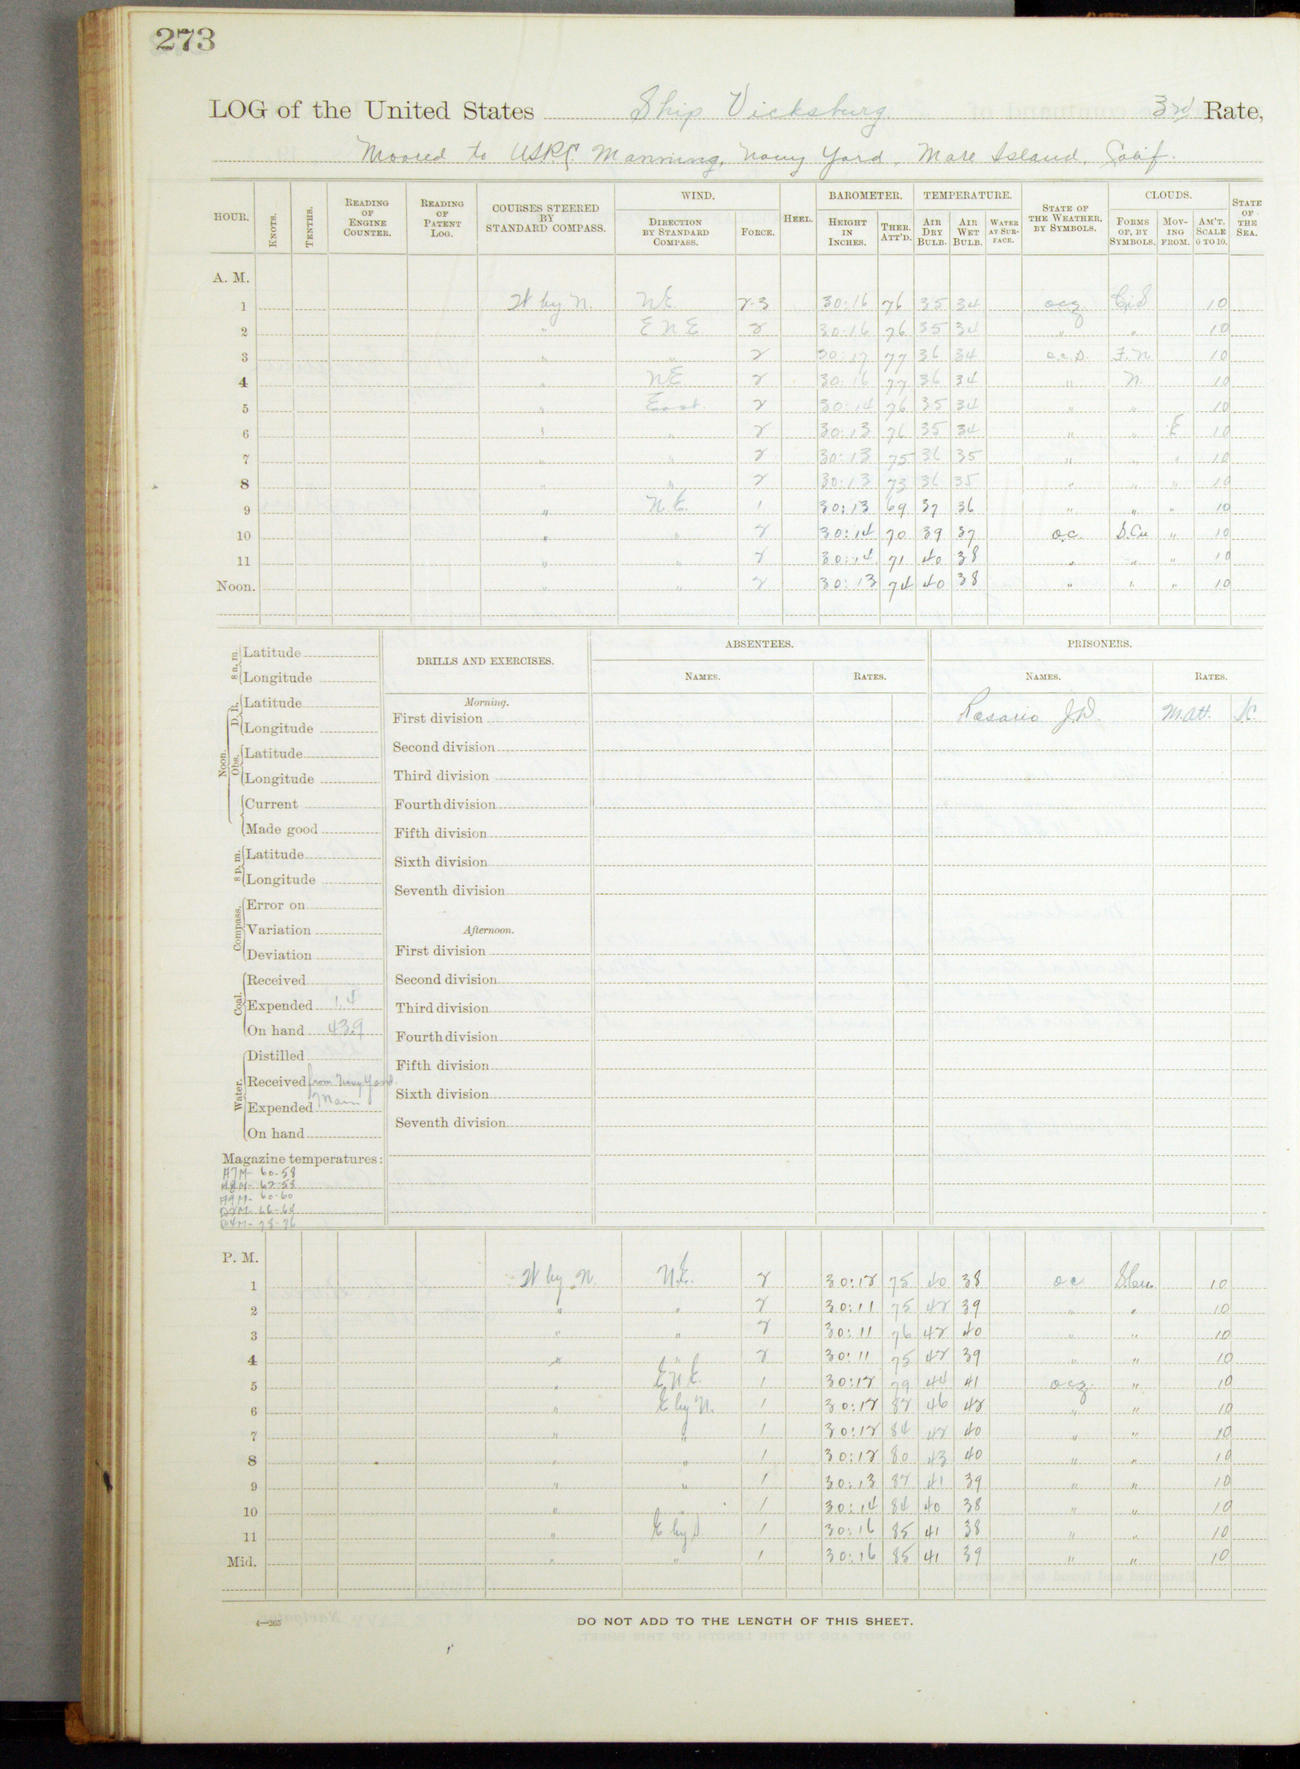 273
LOG of the United States Ship Vicksburg 3rd Rate,
Moored to USRC Manning, Navy Yard, Mare Island, Calif.
HOUR. KNOTS. TENTHS. READING OF ENGINE COUNTER. READING OF PATENT LOG. COURSES STEERED BY STANDARD COMPASS. WIND. DIRECTION BY STANDARD COMPASS. FORCE. HEEL. BAROMETER. HEIGHT IN INCHES. THER. ATT'D. TEMPERATURE. AIR DRY BULB. AIR WET BULB. WATER AT SURFACE. STATE OF THE WEATHER, BY SYMBOLS. CLOUDS. FORMS OF, BY SYMBOLS. MOVING FROM. AM'T. SCALE 0 TO 10. STATE OF THE SEA.
A. M.
1 W by N. NE 2-3 30:16 76 35 34 ocz Ci.S 10
2 " ENE 2 30:16 76 35 34 " " 10
3 " " 2 30:17 77 36 34 F.N. 10
4 " NE 2 30:16 77 36 34 " N. 10
5 " East 2 30:14 76 35 34 " " 10
6 " " 2 30:13 76 35 34 " " E 10
7 " " 2 30:13 75 36 35 " " " 10
8 " " 2 30:13 73 36 35 " " " 10
9 " N.E. 1 30:13 69 37 36 " " " 10
10 " " 2 30:14 70 39 37 o.c. S.Cu " 10
11 " " 2 30:14 71 40 38 " " " 10
Noon. " " 2 30:13 74 40 38 " " " 10
8 a. m. Latitude
Longitude
Noon. D. R. Latitude
Longitude
Obs. Latitude
Longitude
Current
Made good
8 p. m. Latitude
Longitude
Compass. Error on
Variation
Deviation
Coal. Received
Expended 1.4
On hand 43.9
Water. Distilled
Received from Navy Yard
Expended Main
On hand
Magazine temperatures:
A7M- 60-58
A8M- 62-58
A9M- 60-60
D2M- 66-64
D4M- 78-76
DRILLS AND EXERCISES.
Morning.
First division
Second division
Third division
Fourth division
Fifth division
Sixth division
Seventh division
Afternoon.
First division
Second division
Third division
Fourth division
Fifth division
Sixth division
Seventh division
ABSENTEES.
NAMES. RATES.
PRISONERS.
NAMES. RATES.
Rosario J.D. M.Att. 1c.
P. M.
1 W by N. N.E. 2 30:12 75 40 38 o c S.Cu. 10
2 " " 2 30:11 75 42 39 " " 10
3 " " 2 30:11 76 42 40 " 10
4 " " 2 30:11 75 42 39 " " 10
5 " E N E. 1 30:12 79 44 41 ocz. " 10
6 " E by N. 1 30:12 82 46 42 " " 10
7 " " 1 30:12 84 42 40 " " 10
8 " " 1 30:12 80 43 40 " " 10
9 " " 1 30:13 82 41 39 " " 10
10 " " 1 30:14 84 40 38 " " 10
11 " E by S. 1 30:16 85 41 38 " " 10
Mid. " " 1 30:16 85 41 39 " " 10
4—265
DO NOT ADD TO THE LENGTH OF THIS SHEET.